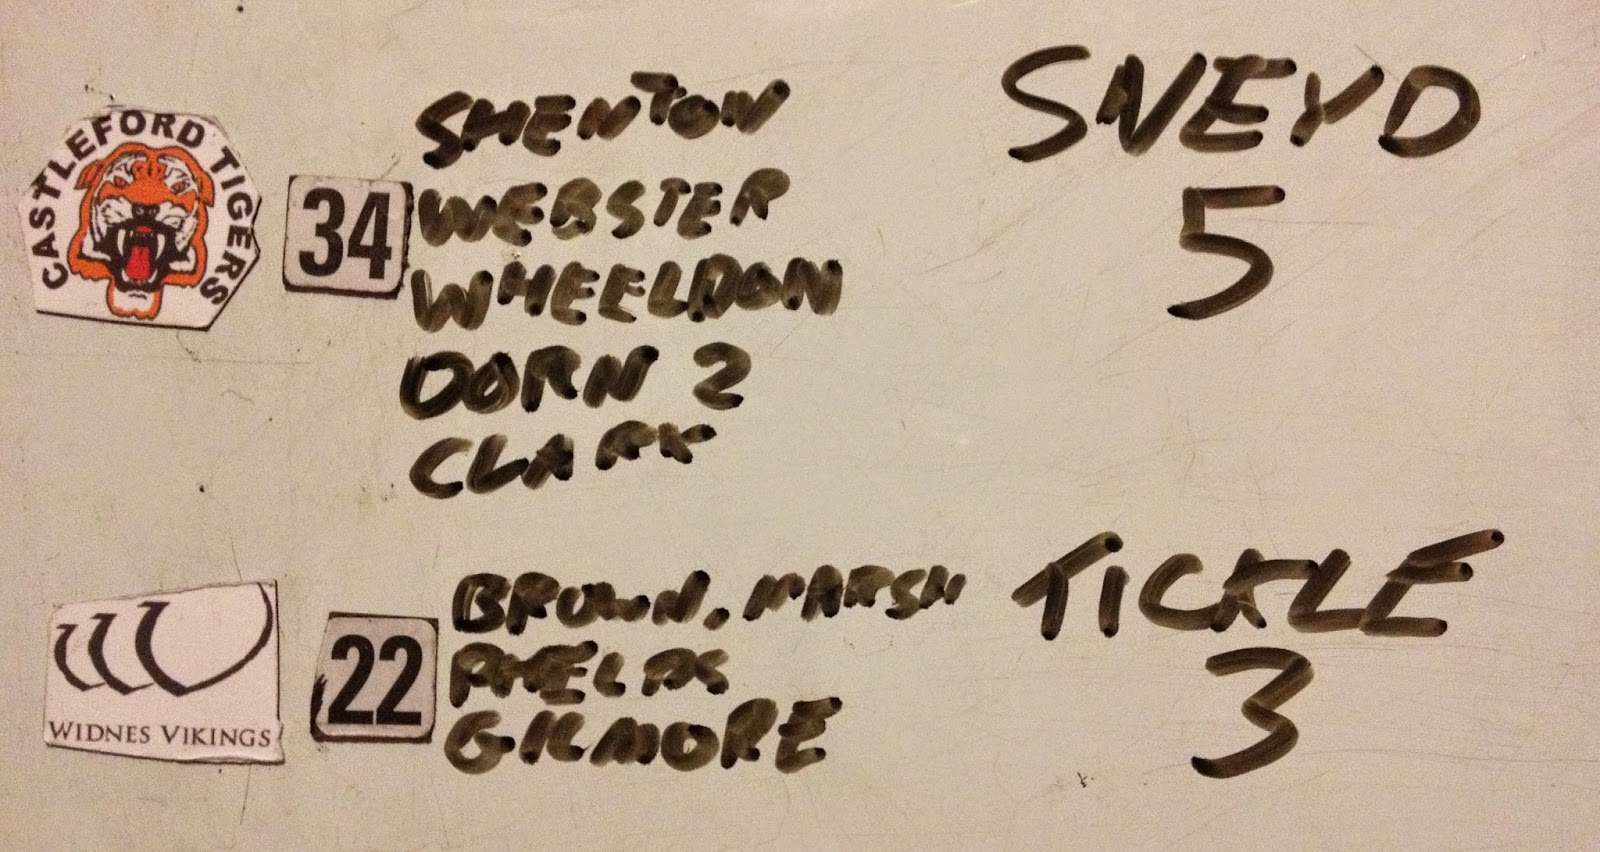 CASTLEFORD TIGERS
34
SHENTON
WEBSTER
WHEELDON
DORN 2
CLARK
SNEYD
5
WIDNES VIKINGS
22
BROWN, MARSH
PHELPS
GILMORE
TICKLE
3